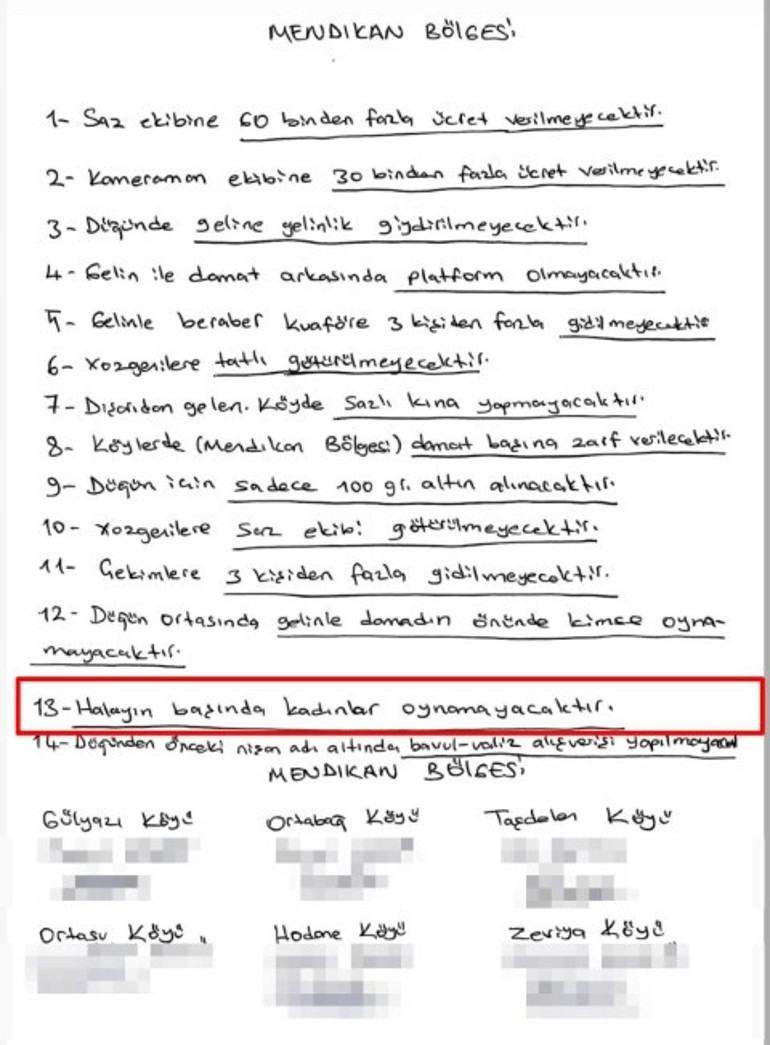 MENDIKAN BÖLGESİ
1- Saz ekibine 60 binden fazla ücret verilmeyecektir.
2- Kameraman ekibine 30 binden fazla ücret verilmeyecektir.
3- Düğünde geline gelinlik giydirilmeyecektir.
4- Gelin ile damat arkasında platform olmayacaktır.
5- Gelinle beraber kuaföre 3 kişiden fazla gidilmeyecektir
6- Xozgenilere tatlı götürülmeyecektir.
7- Dışarıdan gelen. Köyde Sazlı kına yapmayacaktır.
8- Köylerde (Mendikan Bölgesi) damat başına zarf verilecektir.
9- Düğün için sadece 100 gr. altın alınacaktır.
10- xozgenilere Saz ekibi götürülmeyecektir.
11- Çekimlere 3 kişiden fazla gidilmeyecektir.
12- Düğün ortasında gelinle damadın önünde kimse oyna-
mayacaktır.
13- Halayın başında kadınlar oynamayacaktır.
14- Düğünden önceki nişan adı altında bavul-valiz alışverişi
MENDIKAN BÖLGESİ
Gülyazı Köyü Ortabağ Köyü Taşdelen Köyü
Ortasu Köyü Hodane Köyü Zeviya Köyü